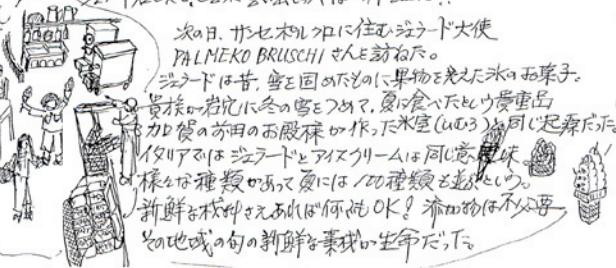 次の日、サンセポルクロに住むジェラード大使
PALMEKO BRUSCHI さんを訪ねた。
ジェラードは昔、雪を固めたものに果物を添えた氷のお菓子。
貴族が岩穴に冬の雪をつめて、夏に食べたという貴重品
加賀の前田のお殿様が作った氷室(ひむろ)と同じ起源だった
イタリアではジェラードとアイスクリームは同じ意味
様々な種類があって夏には100種類も並ぶという。
新鮮な材料さえあれば何でもOK! 添加物は不必要
その地域の旬の新鮮な素材が生命だった。